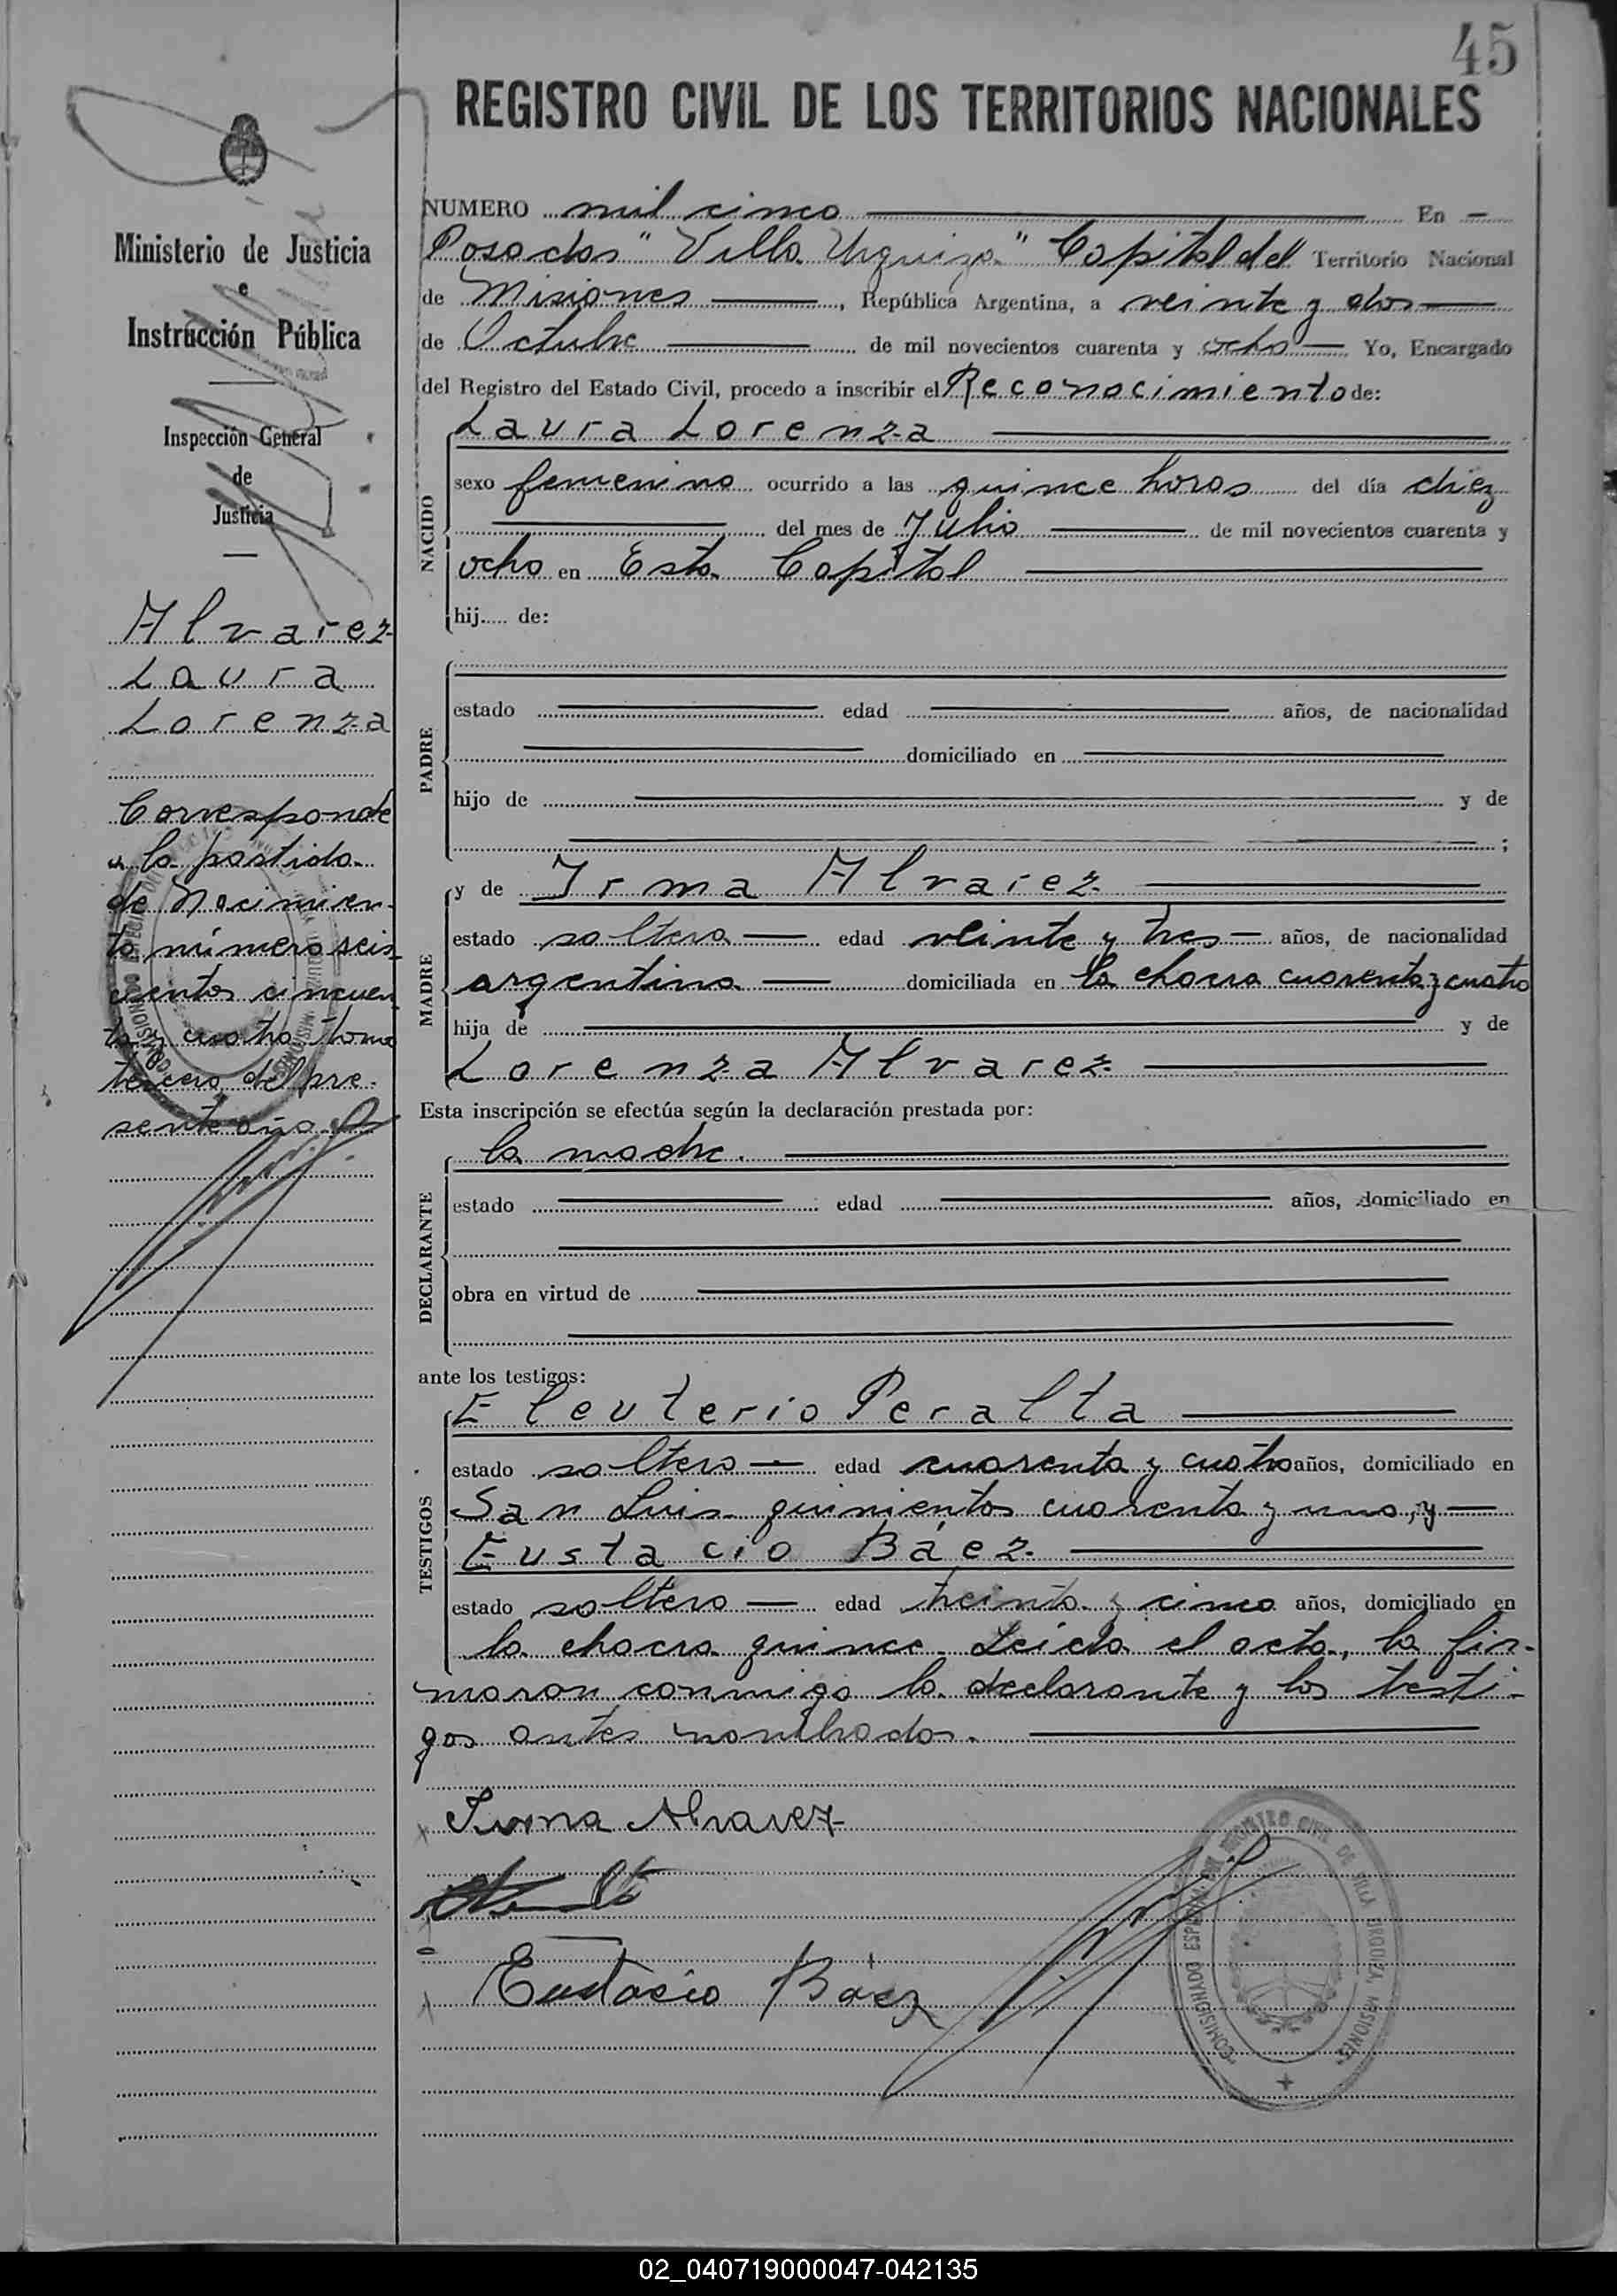 45
REGISTRO CIVIL DE LOS TERRITORIOS NACIONALES
Ministerio de Justicia
e
Instrucción Pública
Inspección General
de
Justicia
Alvarez
Laura
Lorenza
Corresponde
a la partida
de Nacimien-
to número seis
cientos cincuen
ta y cuatro tomo
tercero del pre-
sente año.
NUMERO mil cinco En
Posadas "Villa Urquiza" Capital del Territorio Nacional
de Misiones, República Argentina, a veinte y dos
de Octubre de mil novecientos cuarenta y ocho Yo, Encargado
del Registro del Estado Civil, procedo a inscribir el Reconocimiento de:
NACIDO
Laura Lorenza
sexo femenino ocurrido a las quince horas del día diez
del mes de Julio de mil novecientos cuarenta y
ocho en Esta Capital
hij..... de:
PADRE
estado edad años, de nacionalidad
domiciliado en
hijo de y de
;
MADRE
y de Irma Alvarez
estado soltera edad veinte y tres años, de nacionalidad
argentina domiciliada en la chacra cuarenta y cuatro
hija de y de
Lorenza Alvarez
Esta inscripción se efectúa según la declaración prestada por:
DECLARANTE
la madre.
estado edad años, domiciliado en
obra en virtud de
ante los testigos:
TESTIGOS
Eleuterio Peralta
estado soltero edad cuarenta y cuatro años, domiciliado en
San Luis quinientos cuarenta y uno, y
Eustacio Báez
estado soltero edad treinta y cinco años, domiciliado en
la chacra quince. Leída el acta, la fir-
maron conmigo la declarante y los testi-
gos antes nombrados.
Irma Alvarez
Eustacio Báez
COMISIONADO ESPECIAL DEL REGISTRO CIVIL DE VILLA URQUIZA, MISIONES
02_040719000047-042135